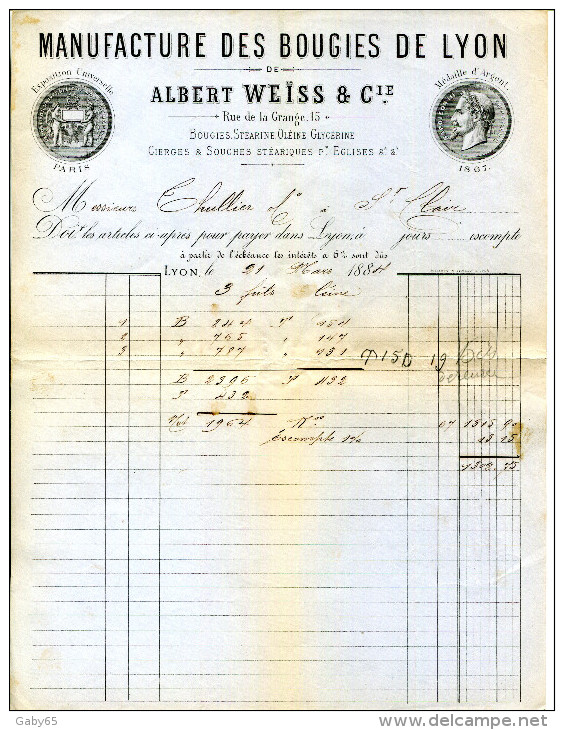 MANUFACTURE DES BOUGIES DE LYON
DE
ALBERT WEÏSS & CIE.
Rue de la Grange. 15
BOUGIES, STEARINE, OLÉINE, GLYCERINE
CIERGES & SOUCHES STÉARIQUES Pr. EGLISES &a. &a.
Exposition Universelle
PARIS
Médaille d'Argent
1867.
Messieurs Thullier à St. Clair
Doit. les articles ci-après pour payer dans Lyon, à jours escompte
à partir de l'échéance les intérêts à 6% sont dûs
LYON, le 21 Mars 1884
3 futs Oléine
1 B 244 154
2 " 765 " 147
3 " 787 " 131
B 2396 432
432
Net 1964 67 1315 90
Escompte 1% 13 15
1302.75
Gaby65
delcampe.net